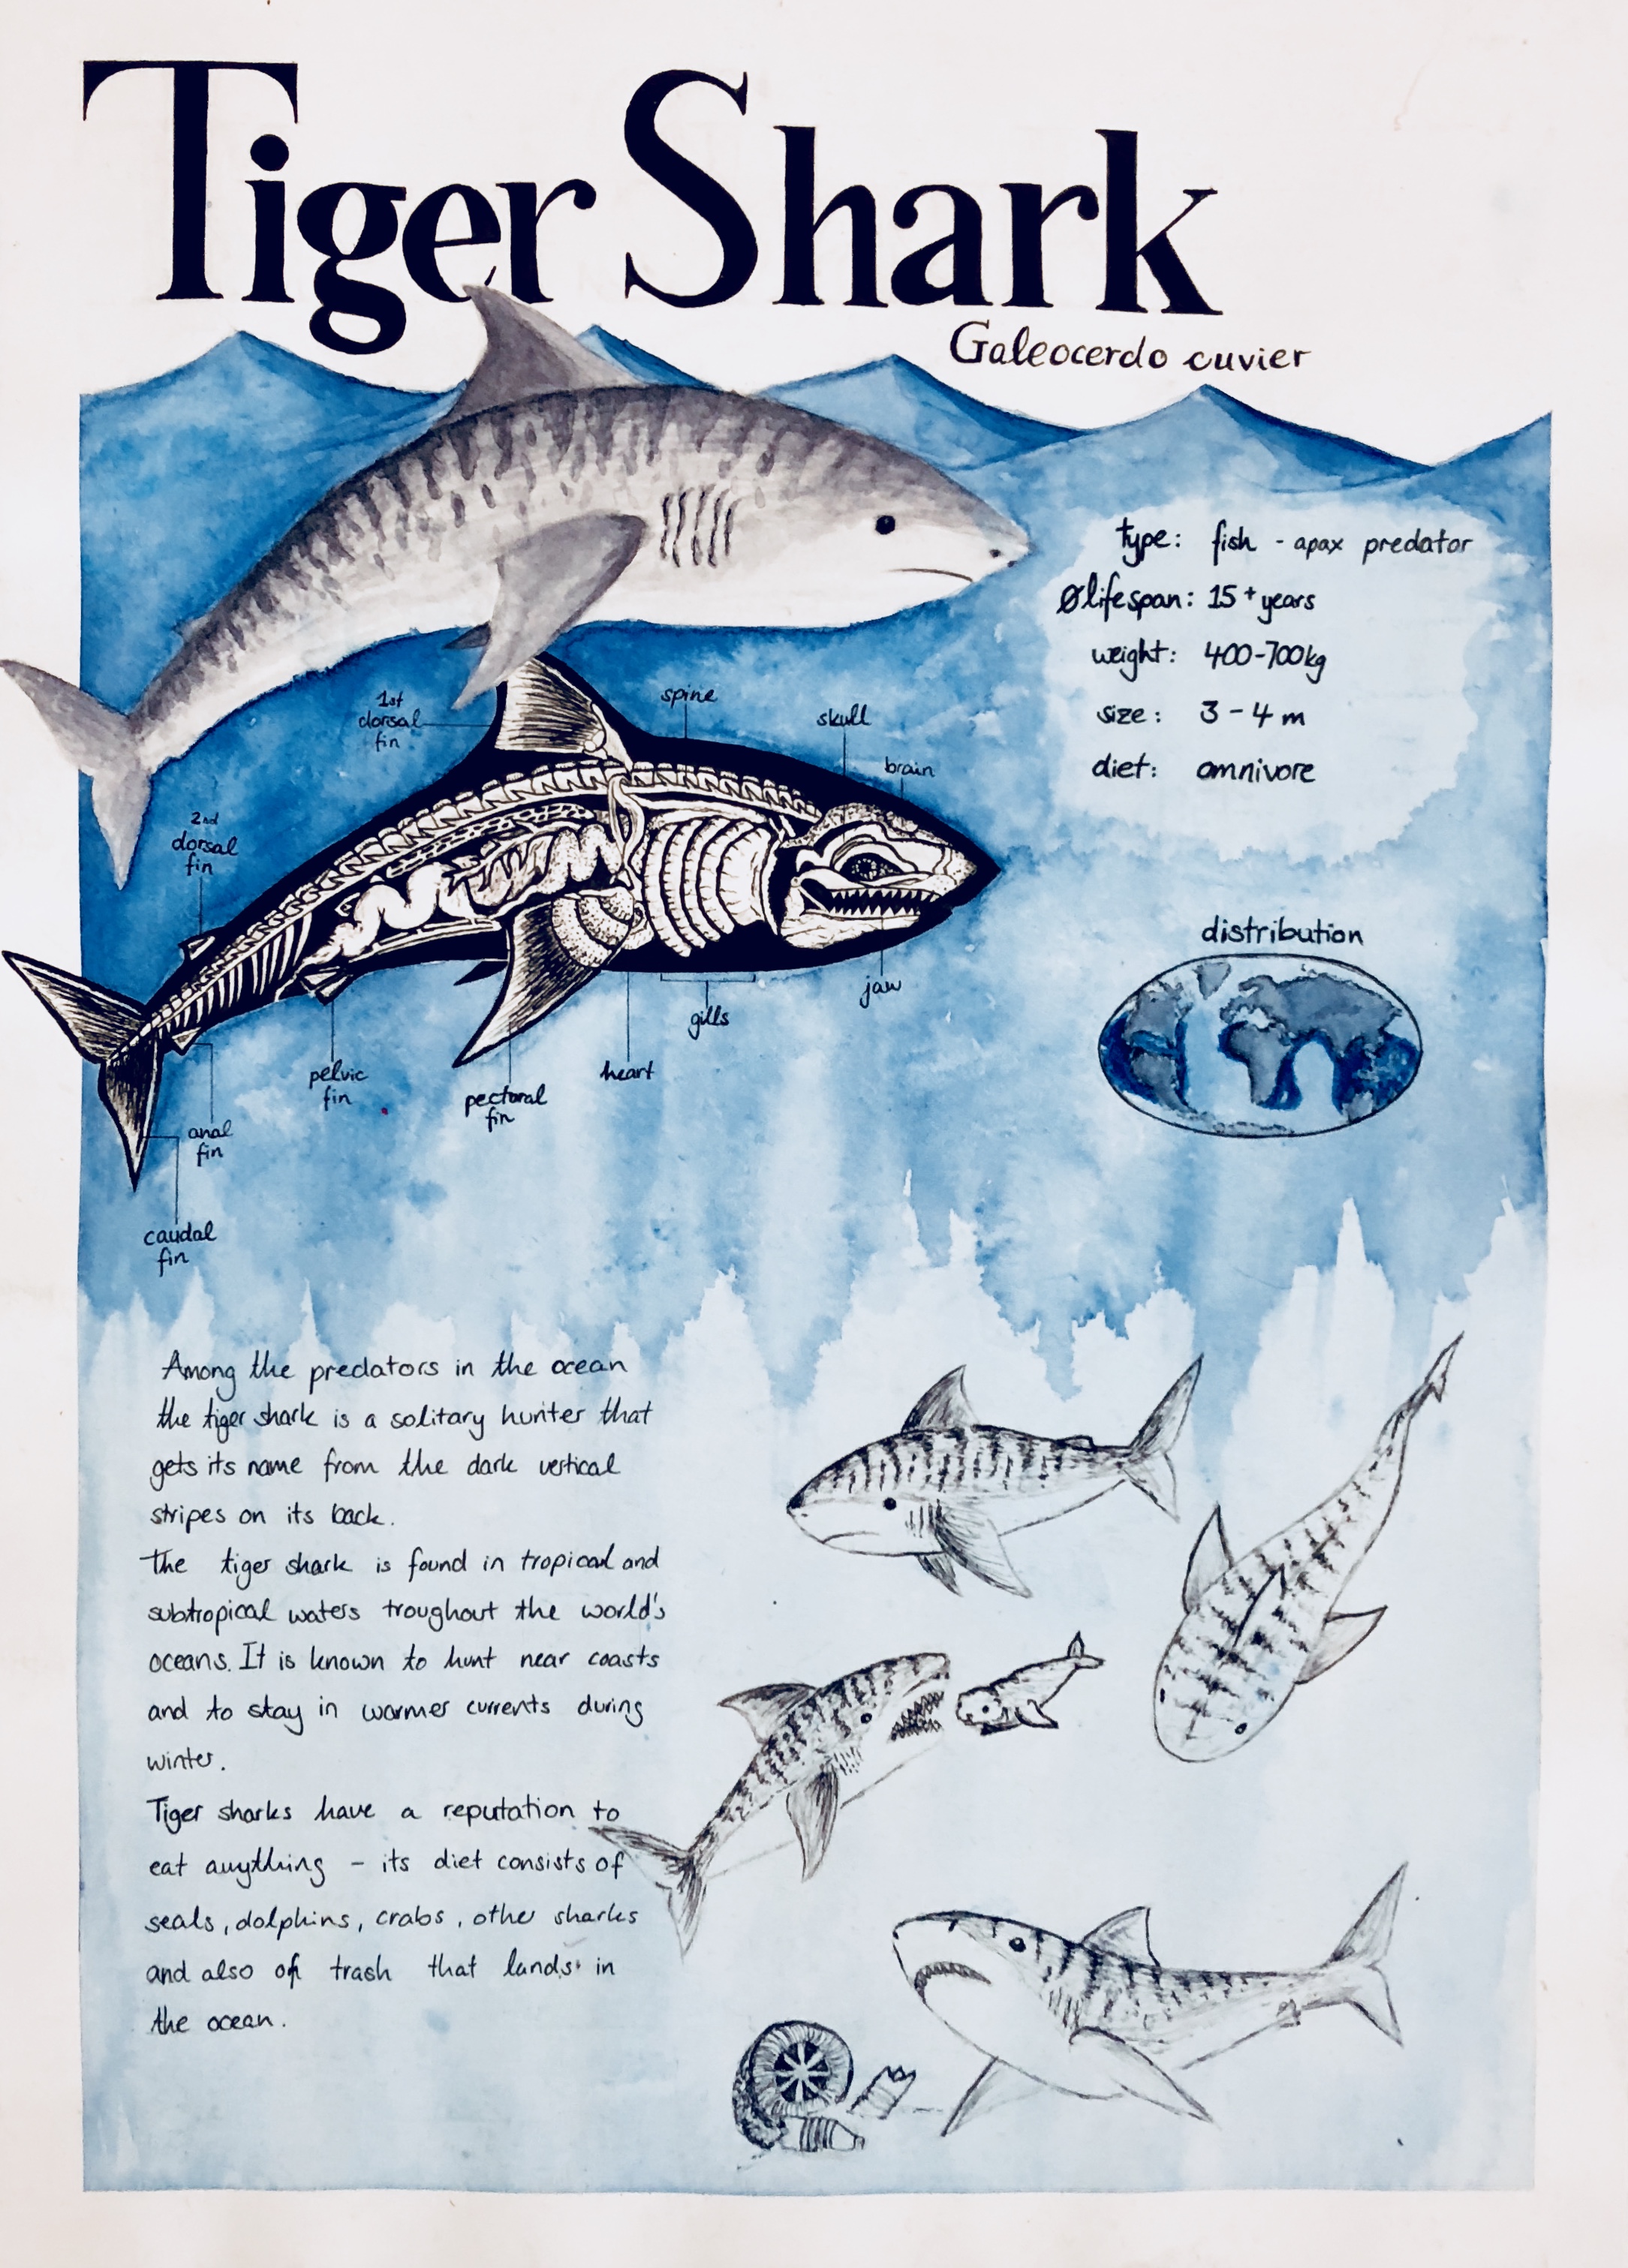 Tiger Shark
Galeocerdo cuvier
type: fish - apax predator
Ølifespan: 15+ years
weight: 400-700kg
size: 3 - 4 m
diet: omnivore
1st
dorsal
fin
spine
skull
brain
2nd
dorsal
fin
distribution
jaw
gills
heart
pelvic
fin
pectoral
fin
anal
fin
caudal
fin
Among the predators in the ocean
the tiger shark is a solitary hunter that
gets its name from the dark vertical
stripes on its back.
The tiger shark is found in tropical and
subtropical waters troughout the world's
oceans. It is known to hunt near coasts
and to stay in warmer currents during
winter.
Tiger sharks have a reputation to
eat anything - its diet consists of
seals, dolphins, crabs, other sharks
and also of trash that lands in
the ocean.